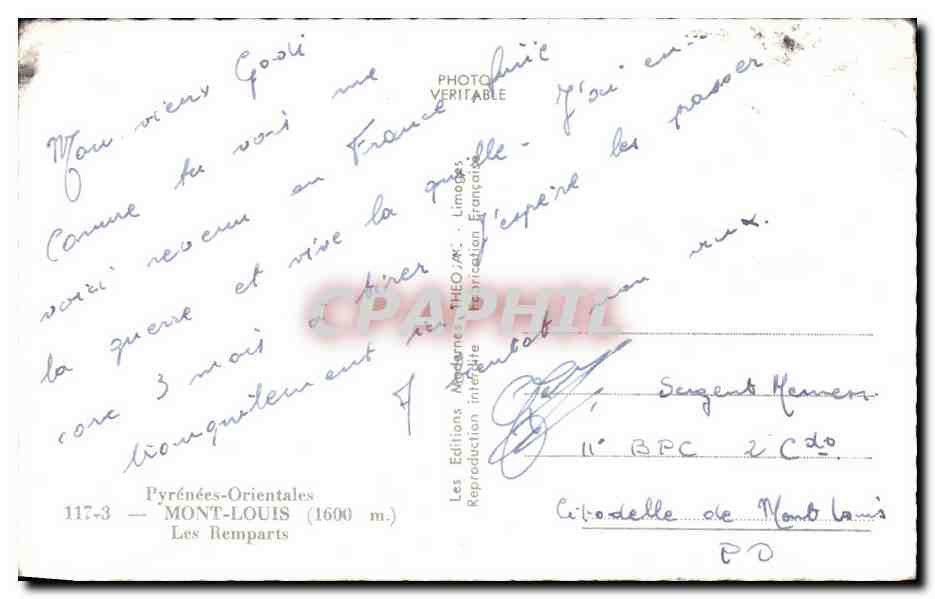 Mon vieux Godi
Comme tu vois me
voici revenu en France finie
la guerre et vive la quille - J'ai en...
core 3 mois a tirer J'espère les passer
tranquilement ici
A bientot mon vieux.
PHOTO
VERITABLE
Les Editions Modernes "THEOJAC" - Limoges
Reproduction interdite - Fabrication Française
CPAPHIL
Sergent
11° BPC 2° Cdo
Citadelle de Mont Louis
PO
Pyrénées-Orientales
117-3 — MONT-LOUIS (1600 m.)
Les Remparts